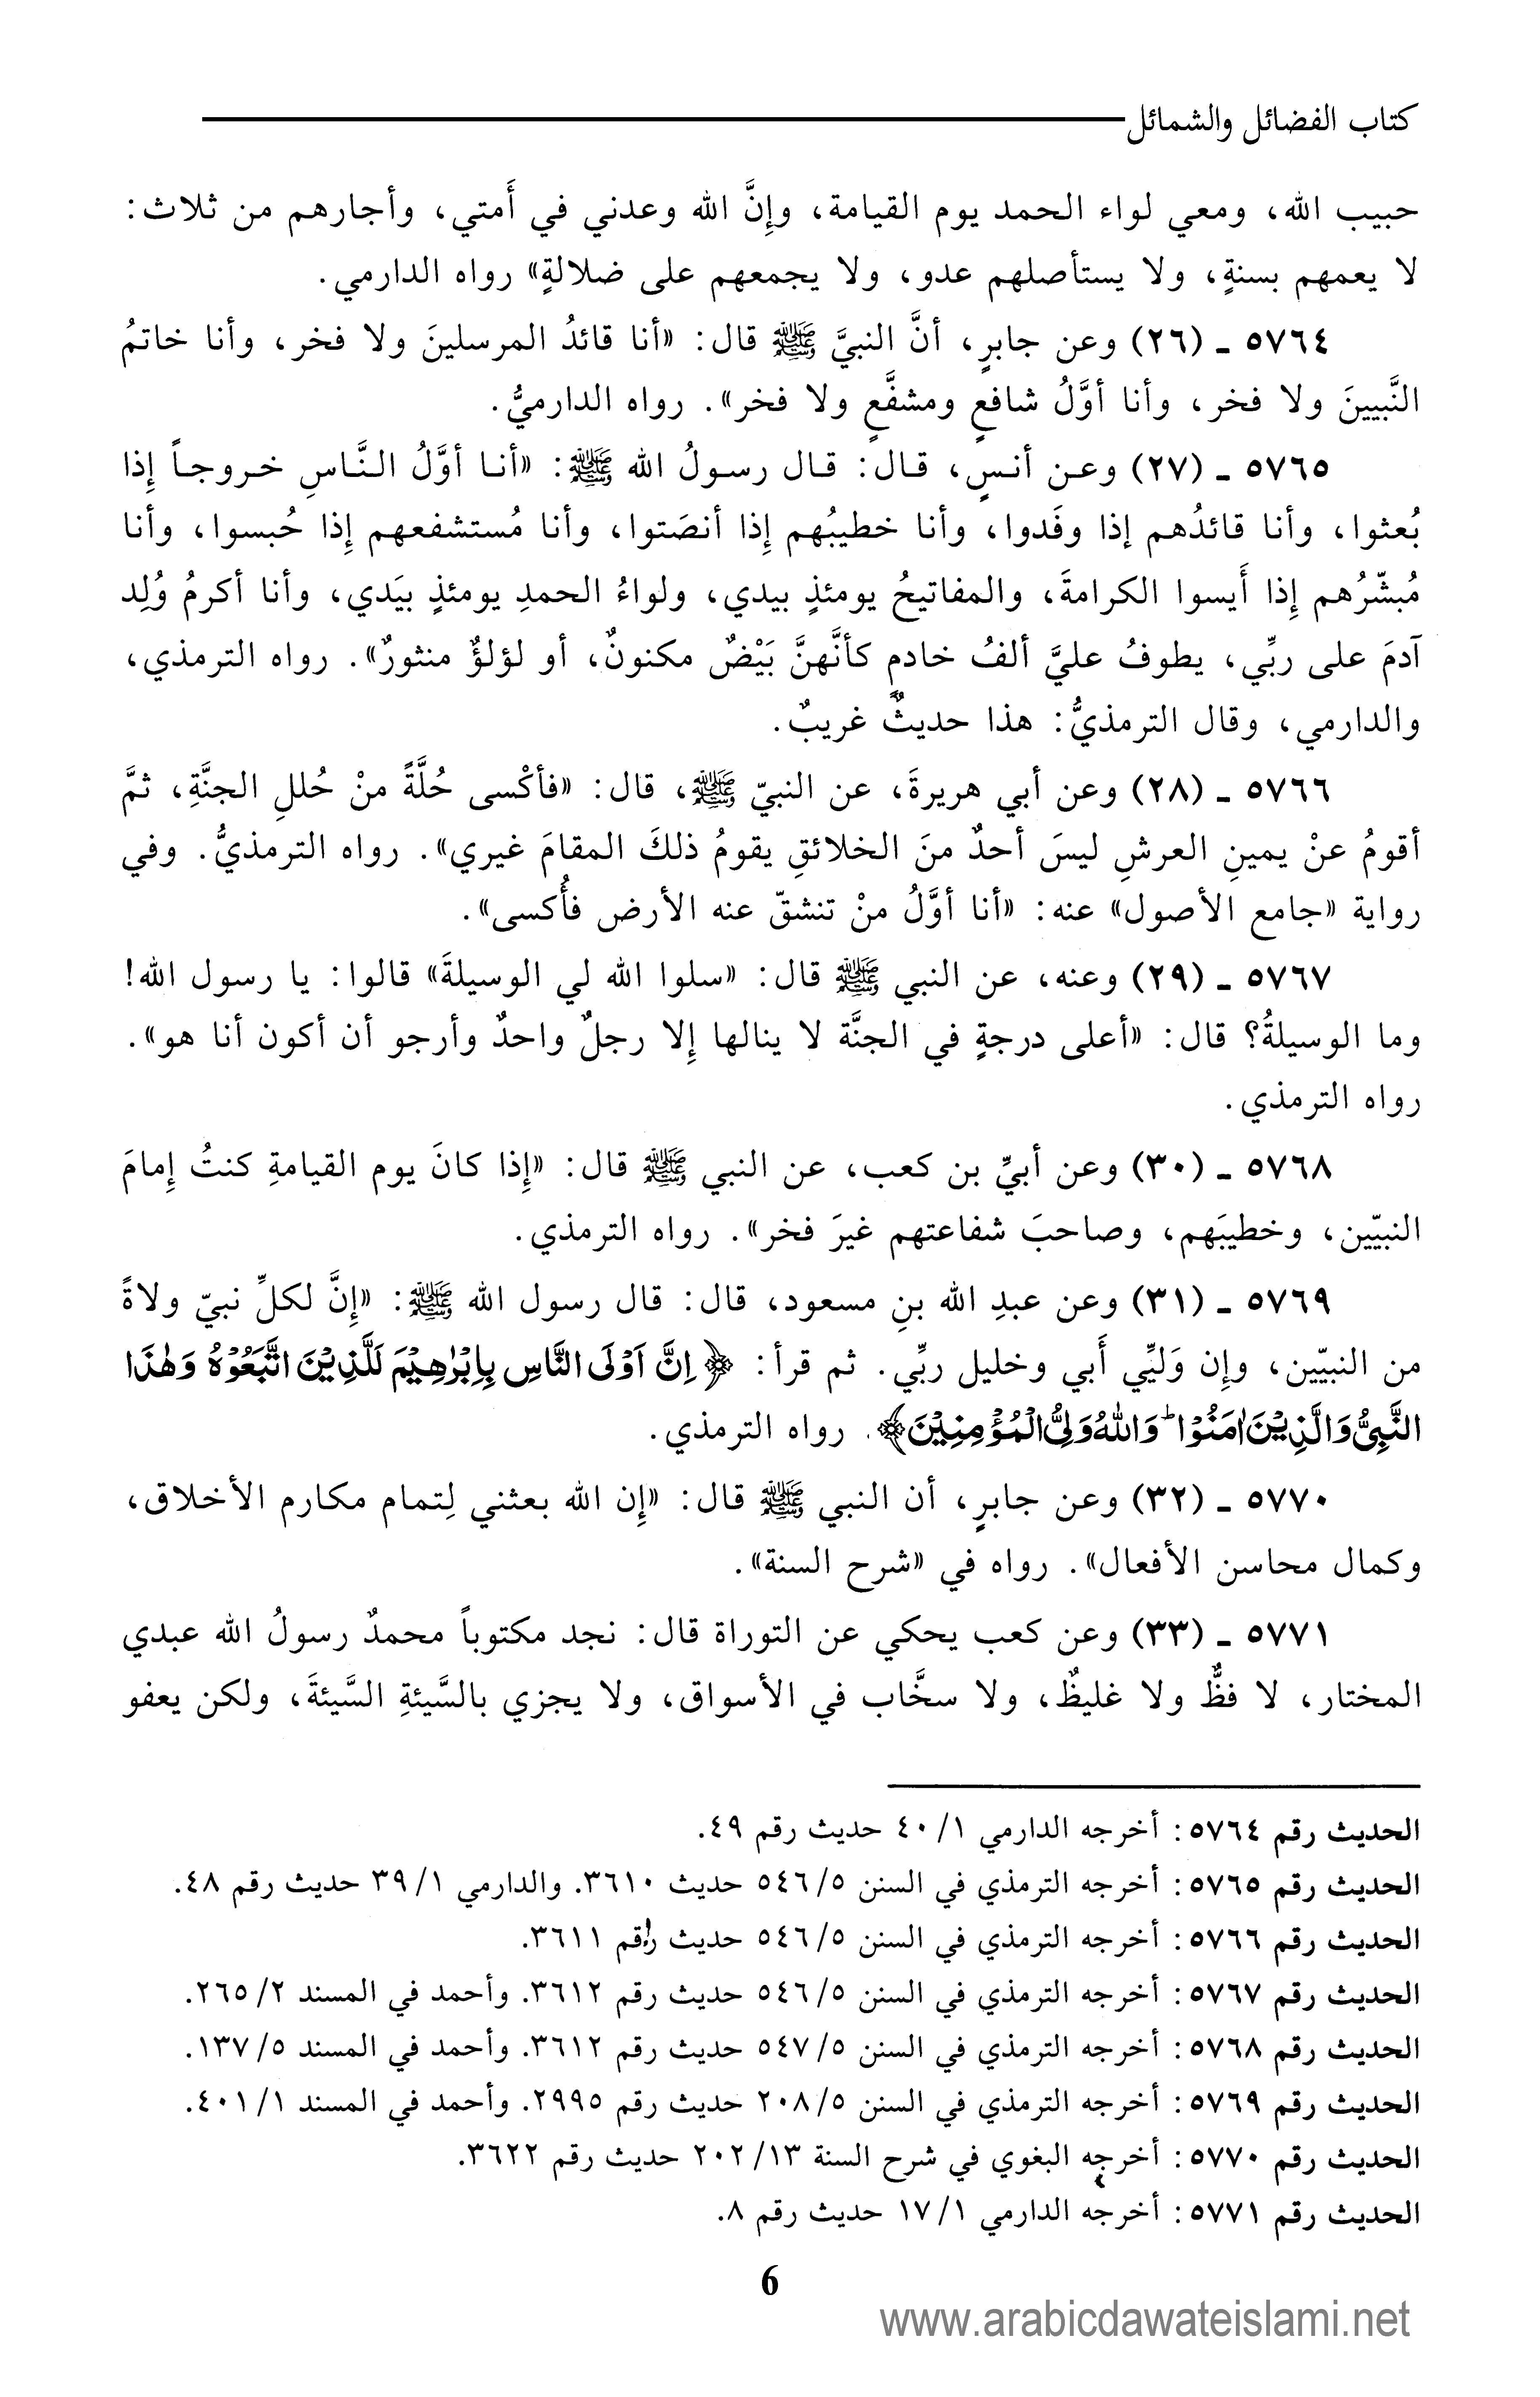 كتاب الفضائل والشمائل
حبيب الله، ومعي لواء الحمد يوم القيامة، وإِنَّ الله وعدني في أَمتي، وأجارهم من ثلاث:
لا يعمهم بسنةٍ، ولا يستأصلهم عدو، ولا يجمعهم على ضلالةٍ» رواه الدارمي.
٥٧٦٤ ـ (٢٦) وعن جابرٍ، أنَّ النبيَّ ﷺ قال: «أنا قائدُ المرسلينَ ولا فخر، وأنا خاتمُ
النَّبيينَ ولا فخر، وأنا أوَّلُ شافعٍ ومشفَّعٍ ولا فخر». رواه الدارميُّ.
٥٧٦٥ ـ (٢٧) وعن أنسٍ، قال: قال رسولُ الله ﷺ: «أنا أوَّلُ النَّاسِ خروجاً إِذا
بُعثوا، وأنا قائدُهم إذا وفَدوا، وأنا خطيبُهم إِذا أنصَتوا، وأنا مُستشفعهم إِذا حُبسوا، وأنا
مُبشّرُهم إِذا أَيسوا الكرامةَ، والمفاتيحُ يومئذٍ بيدي، ولواءُ الحمدِ يومئذٍ بيَدي، وأنا أكرمُ وُلِد
آدمَ على ربِّي، يطوفُ عليَّ ألفُ خادمٍ كأنَّهنَّ بَيْضٌ مكنونٌ، أو لؤلؤٌ منثورٌ». رواه الترمذي،
والدارمي، وقال الترمذيُّ: هذا حديثٌ غريبٌ.
٥٧٦٦ ـ (٢٨) وعن أبي هريرةَ، عن النبيّ ﷺ، قال: «فأكْسى حُلَّةً منْ حُللِ الجنَّةِ، ثمَّ
أقومُ عنْ يمينِ العرشِ ليسَ أحدٌ منَ الخلائقِ يقومُ ذلكَ المقامَ غيري». رواه الترمذيُّ. وفي
رواية «جامع الأصول» عنه: «أنا أوَّلُ منْ تنشقّ عنه الأرض فأُكسى».
٥٧٦٧ ـ (٢٩) وعنه، عن النبي ﷺ قال: «سلوا الله لي الوسيلةَ» قالوا: يا رسول الله!
وما الوسيلةُ؟ قال: «أعلى درجةٍ في الجنَّة لا ينالها إِلا رجلٌ واحدٌ وأرجو أن أكون أنا هو».
رواه الترمذي.
٥٧٦٨ ـ (٣٠) وعن أبيِّ بن كعب، عن النبي ﷺ قال: «إِذا كانَ يوم القيامةِ كنتُ إِمامَ
النبيّين، وخطيبَهم، وصاحبَ شفاعتهم غيرَ فخر». رواه الترمذي.
٥٧٦٩ ـ (٣١) وعن عبدِ الله بنِ مسعود، قال: قال رسول الله ﷺ: «إِنَّ لكلِّ نبيّ ولاةً
من النبيّين، وإِن وَليِّي أَبي وخليل ربِّي. ثم قرأ: ﴿اِنَّ اَوْلَى النَّاسِ بِاِبْرٰهِيْمَ لَلَّذِيْنَ اتَّبَعُوْهُ وَهٰذَا
النَّبِيُّ وَالَّذِيْنَ اٰمَنُوْا ؕ وَاللّٰهُ وَلِيُّ الْمُؤْمِنِيْنَ﴾. رواه الترمذي.
٥٧٧٠ ـ (٣٢) وعن جابرٍ، أن النبي ﷺ قال: «إِن الله بعثني لِتمام مكارم الأخلاق،
وكمال محاسن الأفعال». رواه في «شرح السنة».
٥٧٧١ ـ (٣٣) وعن كعب يحكي عن التوراة قال: نجد مكتوباً محمدٌ رسولُ الله عبدي
المختار، لا فظٌّ ولا غليظٌ، ولا سخَّاب في الأسواق، ولا يجزي بالسَّيئةِ السَّيئةَ، ولكن يعفو
الحديث رقم ٥٧٦٤: أخرجه الدارمي ٤٠/١ حديث رقم ٤٩.
الحديث رقم ٥٧٦٥: أخرجه الترمذي في السنن ٥٤٦/٥ حديث ٣٦١٠. والدارمي ٣٩/١ حديث رقم ٤٨.
الحديث رقم ٥٧٦٦: أخرجه الترمذي في السنن ٥٤٦/٥ حديث رقم ٣٦١١.
الحديث رقم ٥٧٦٧: أخرجه الترمذي في السنن ٥٤٦/٥ حديث رقم ٣٦١٢. وأحمد في المسند ٢٦٥/٢.
الحديث رقم ٥٧٦٨: أخرجه الترمذي في السنن ٥٤٧/٥ حديث رقم ٣٦١٢. وأحمد في المسند ١٣٧/٥.
الحديث رقم ٥٧٦٩: أخرجه الترمذي في السنن ٢٠٨/٥ حديث رقم ٢٩٩٥. وأحمد في المسند ٤٠١/١.
الحديث رقم ٥٧٧٠: أخرجه البغوي في شرح السنة ٢٠٢/١٣ حديث رقم ٣٦٢٢.
الحديث رقم ٥٧٧١: أخرجه الدارمي ١٧/١ حديث رقم ٨.
6
www.arabicdawateislami.net